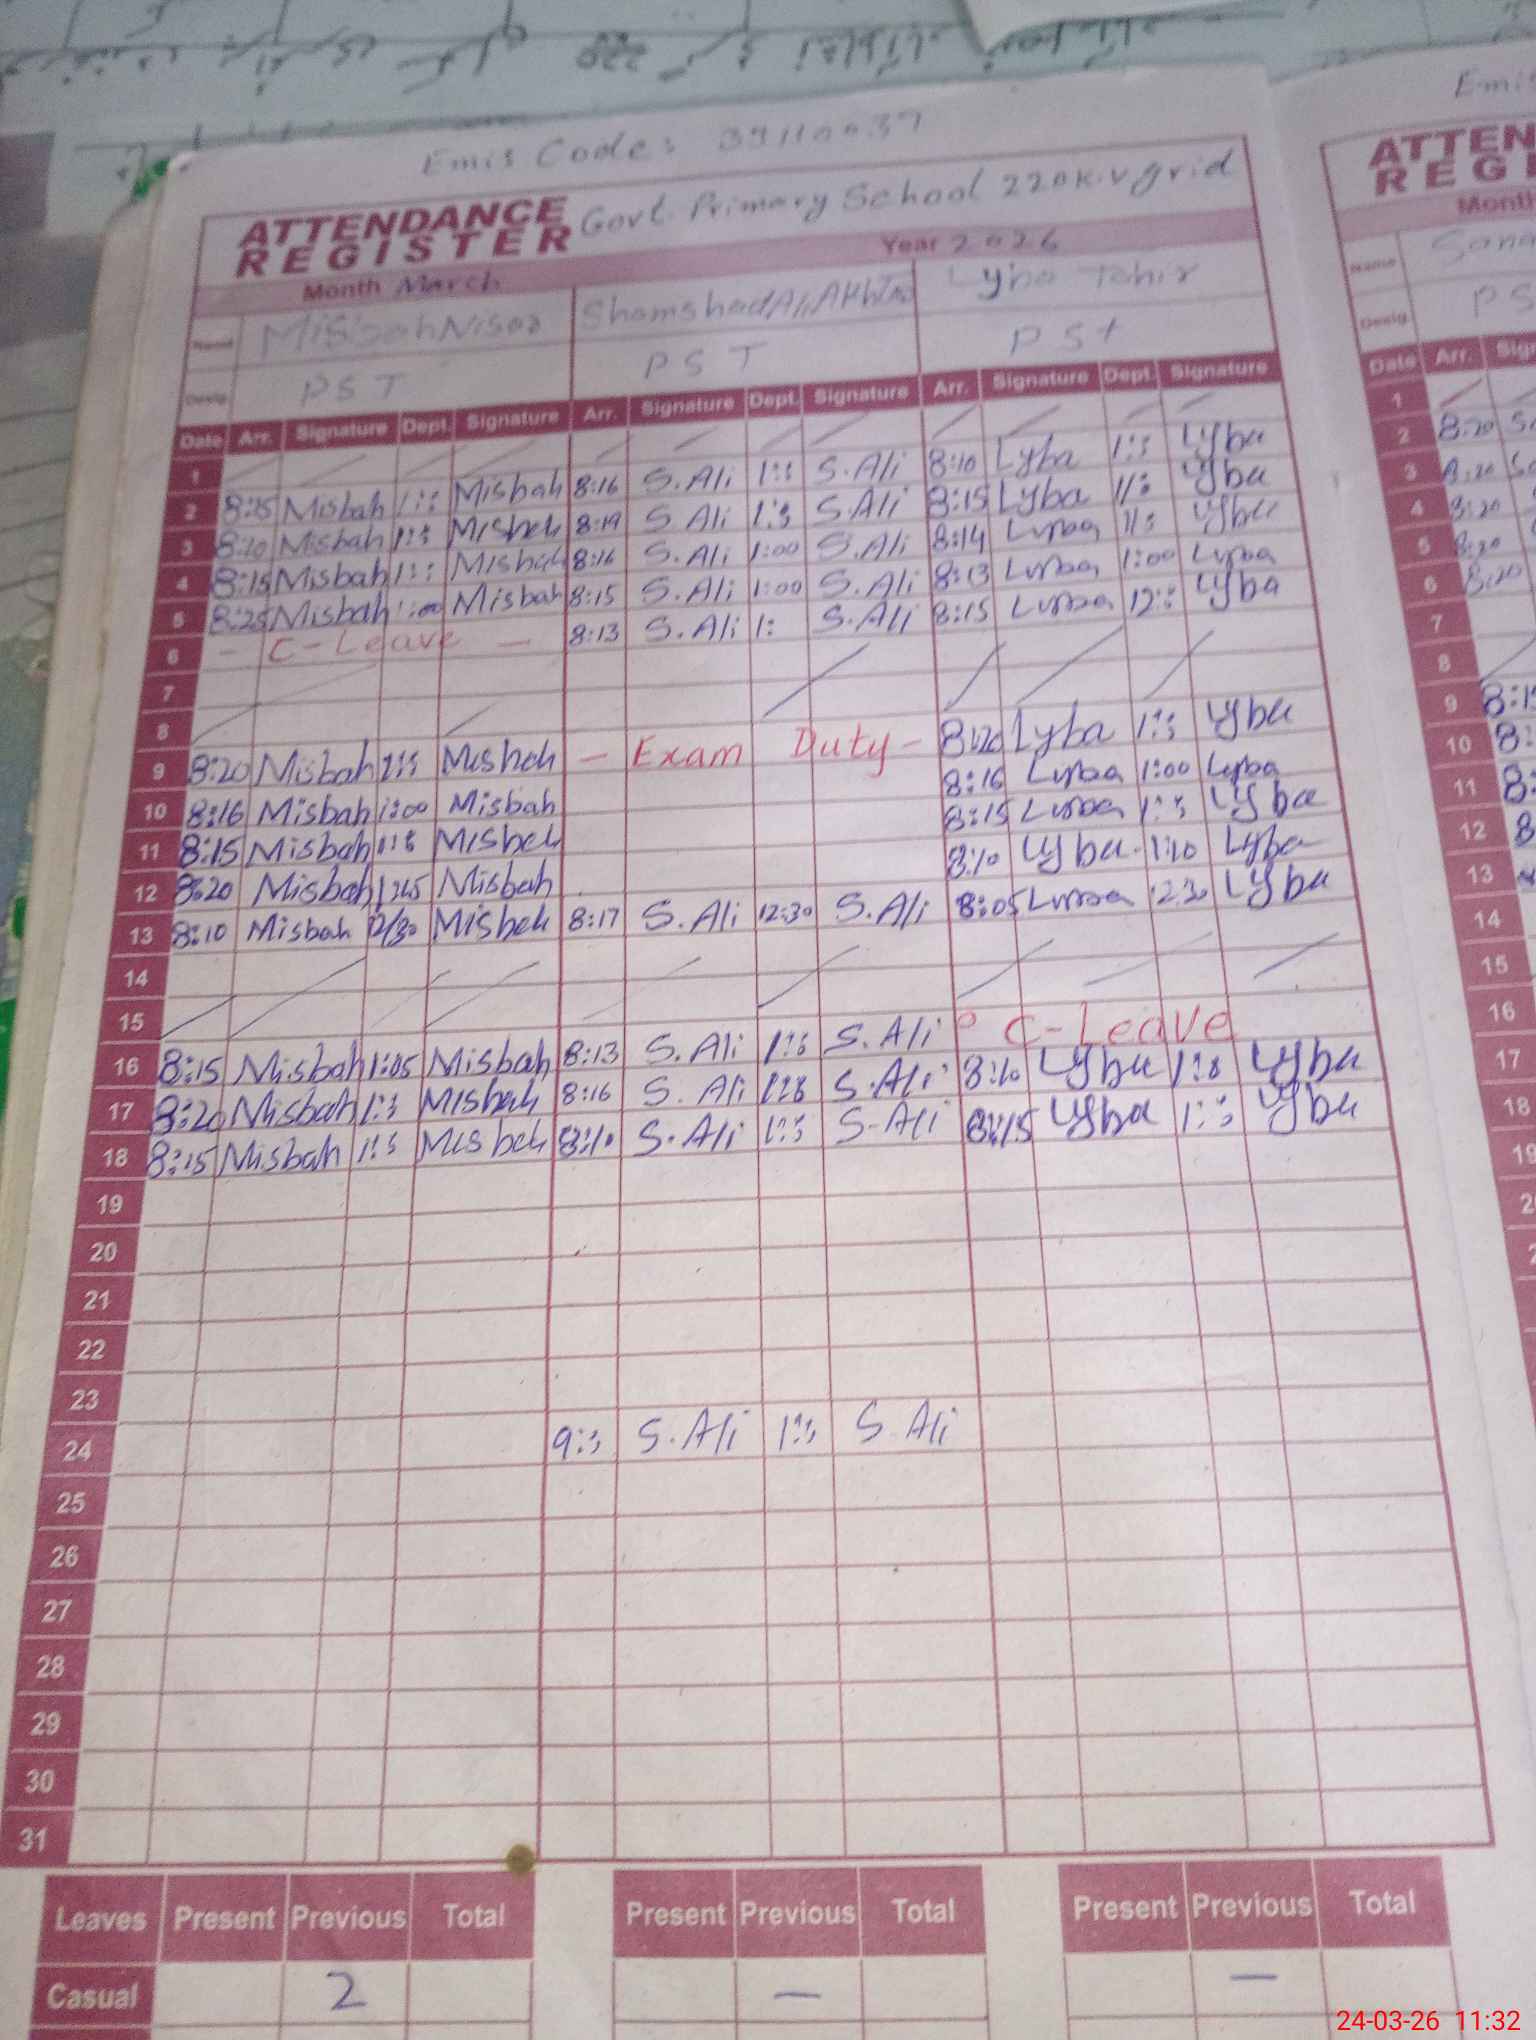 Emis Code: 39110037
ATTENDANCE REGISTER Govt. Primary School 220K.V grid
Month March Year 2026
Name Misbah Nisar Shamshad Ali Akhtar Lyba Tahir
Desig. PST PST PSt
Date Arr. Signature Dept. Signature Arr. Signature Dept. Signature Arr. Signature Dept. Signature
1
2 8:15 Misbah 1:: Misbah 8:16 S.Ali 1:: S.Ali 8:10 Lyba 1:: Lyba
3 8:20 Misbah 1:: Misbah 8:19 S.Ali 1:: S.Ali 8:15 Lyba 1:: Lyba
4 8:15 Misbah 1:: Misbah 8:16 S.Ali 1:00 S.Ali 8:14 Lyba 1:: Lyba
5 8:25 Misbah 1:00 Misbah 8:15 S.Ali 1:00 S.Ali 8:13 Lyba 1:00 Lyba
6 - C-Leave - 8:13 S.Ali 1: S.Ali 8:15 Lyba 12:: Lyba
7
8
9 8:20 Misbah 1:: Misbah - Exam Duty - 8:20 Lyba 1:: Lyba
10 8:16 Misbah 1:00 Misbah 8:16 Lyba 1:00 Lyba
11 8:15 Misbah 1:: Misbah 8:15 Lyba 1:: Lyba
12 8:20 Misbah Misbah 8:10 Lyba 1:10 Lyba
13 8:10 Misbah 12/30 Misbah 8:17 S.Ali 12:30 S.Ali 8:05 Lyba 12:30 Lyba
14
15
16 8:15 Misbah 1:05 Misbah 8:13 S.Ali 1:: S.Ali C-Leave
17 8:20 Misbah 1:: Misbah 8:16 S.Ali 1:: S.Ali 8:10 Lyba 1:: Lyba
18 8:15 Misbah 1:: Misbah 8:10 S.Ali 1:: S-Ali 8:15 Lyba 1:: Lyba
19
20
21
22
23
24 9:: S.Ali 1:: S.Ali
25
26
27
28
29
30
31
Leaves Present Previous Total Present Previous Total Present Previous Total
Casual 2 - -
Emis
ATTEN
REGI
Month
Name Sana
Desig. PS
Date Arr. Sig
1
2 8:20 Sa
3 8:20 Sa
4 8:20
5 8:20
6 8:20
7
8
9 8:1
10 8:
11 8:
12 8
13
14
15
16
17
18
19
24-03-26 11:32